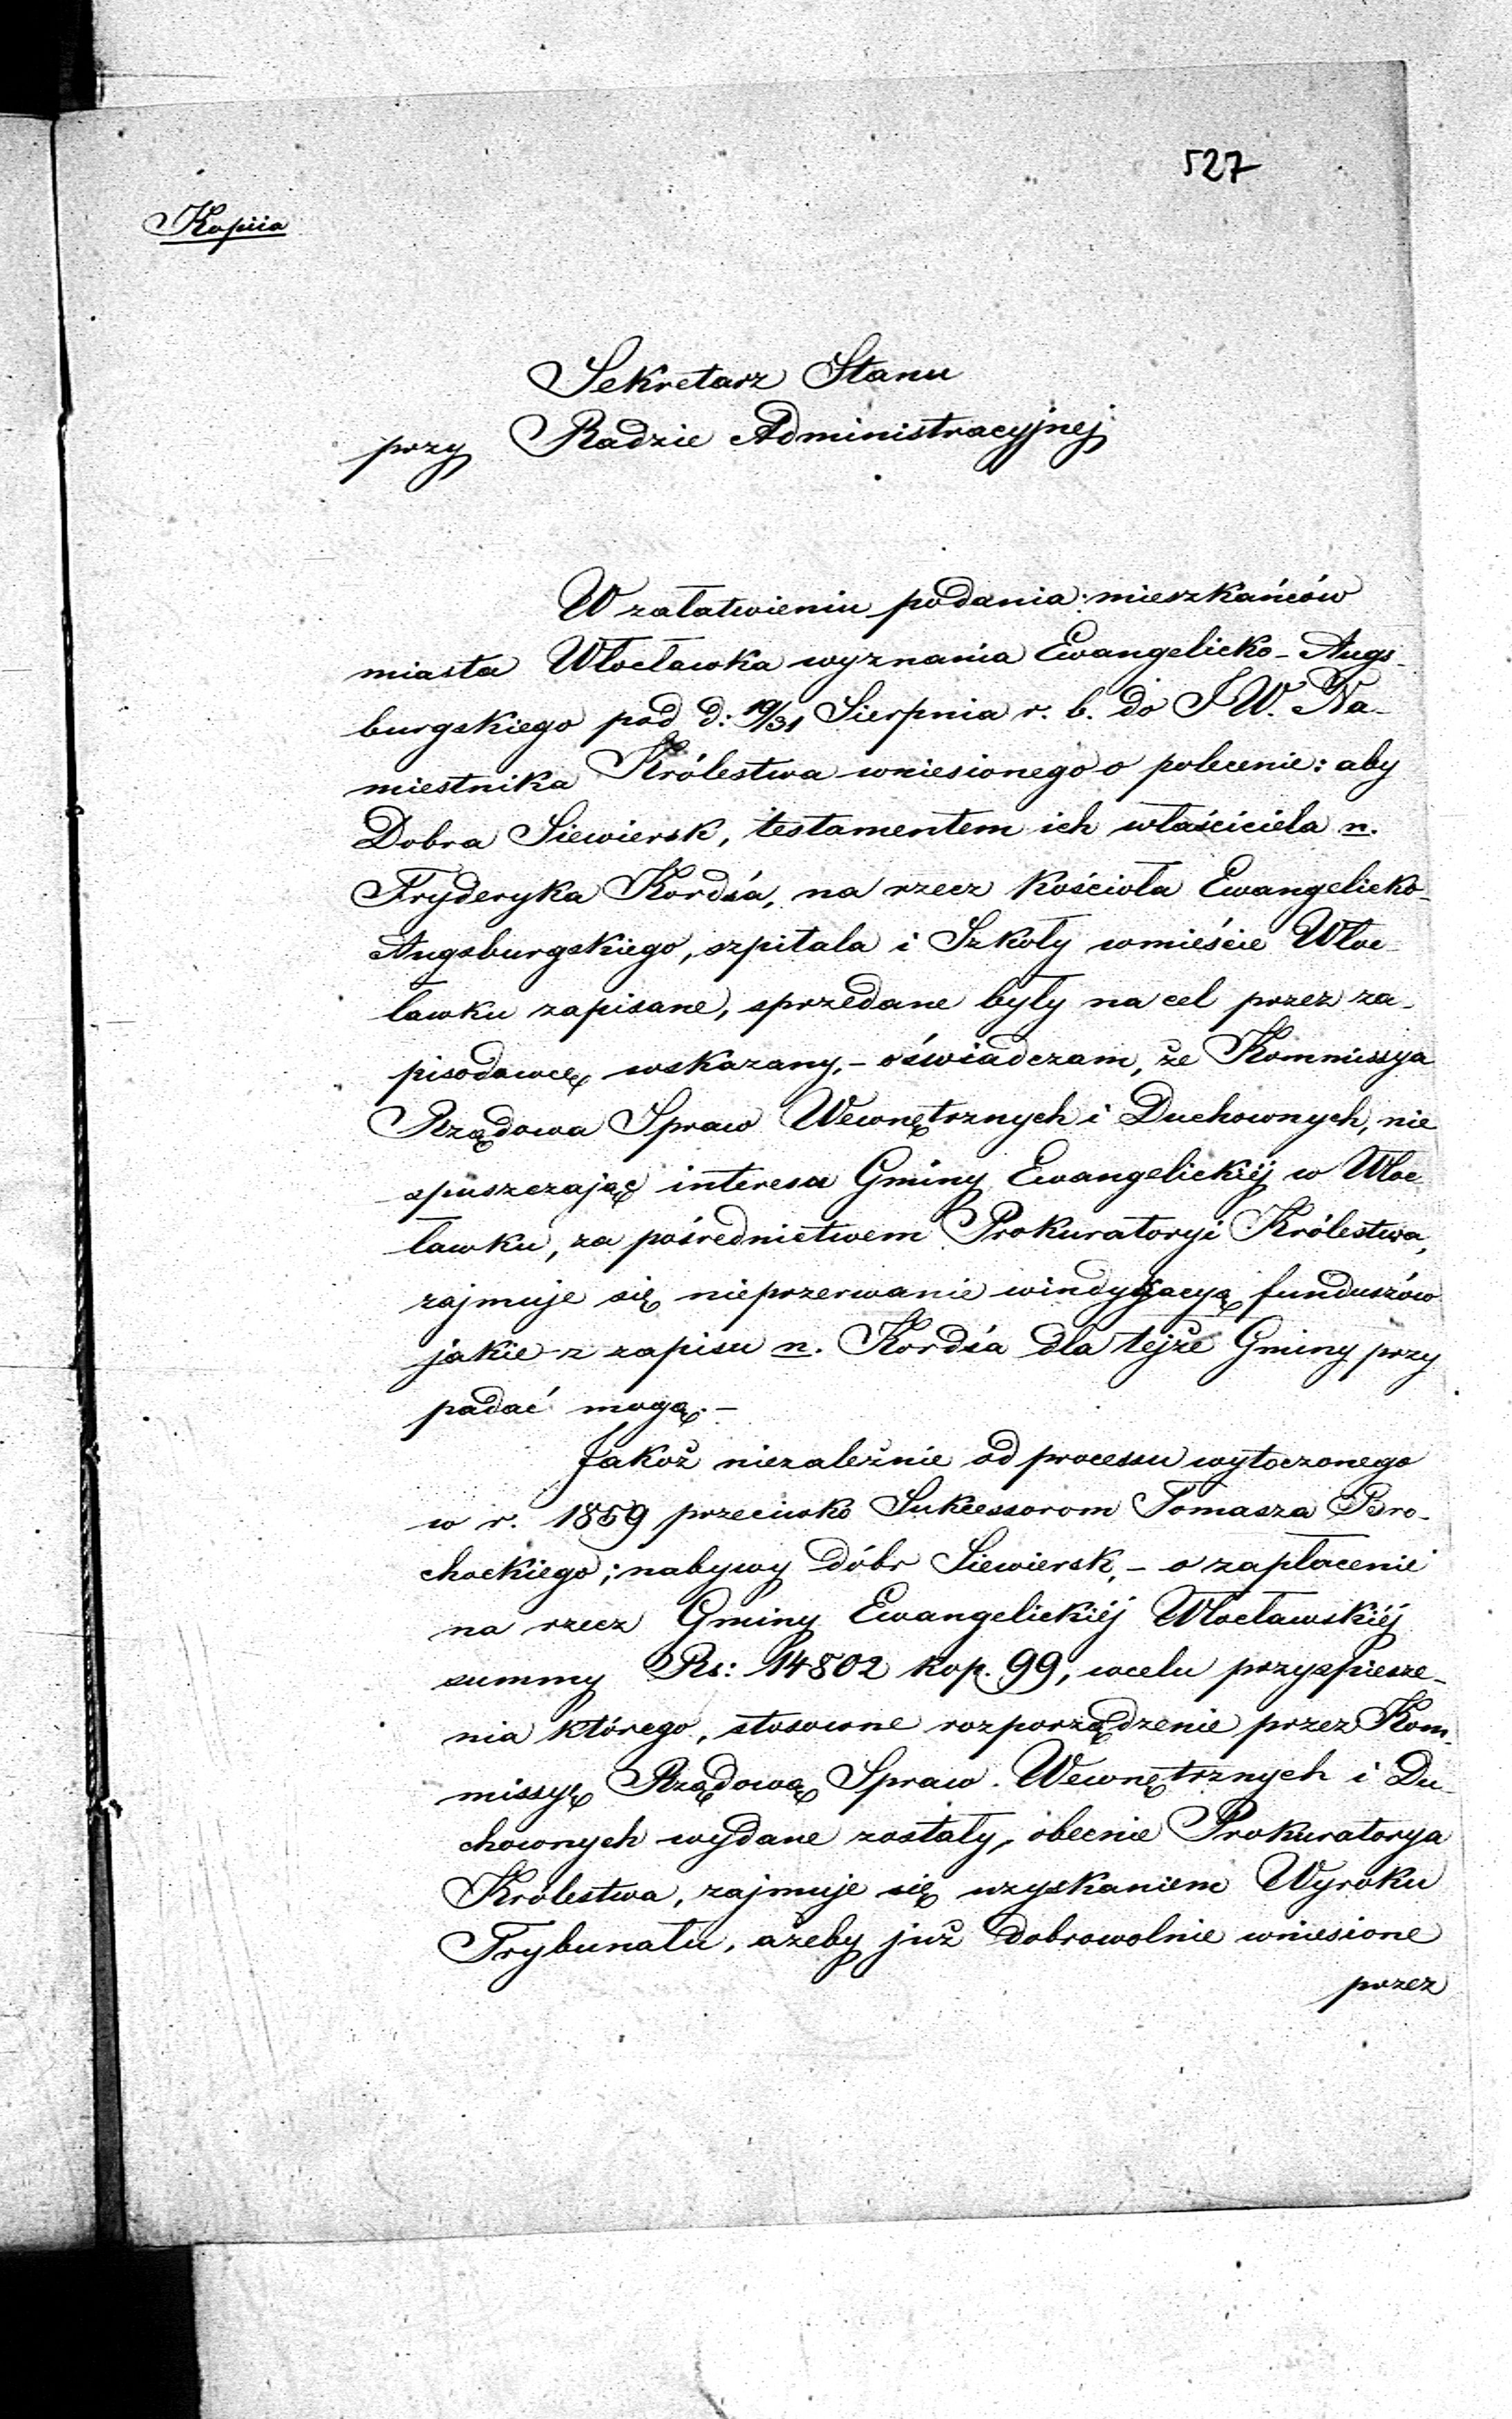 527
Kopiia
Sekretarz Stanu
przy Radzie Administracyjnej
W załatwieniu podania mieszkańców
miasta Włocławka wyznania Ewangelicko-Augs-
burgskiego pod d: 19/31 Sierpnia r. b. do J W. Na-
miestnika Królestwa wniesionego o polecenie: aby
Dobra Siewiersk, testamentem ich właściciela n.
Fryderyka Kordśa, na rzecz Kościoła Ewangelicko-
Augsburgskiego, szpitala i Szkoły wmieście Włoc-
ławku zapisane, sprzedane były na cel przez za-
pisodawcę wskazany, - oświadczam, że Kommissya
Rządowa Spraw Wewnętrznych i Duchownych, nie
spuszczając interesu Gminy Ewangelickiéj w Włoc
ławku, za pośrednictwem Prokuratoryi Królestwa,
zajmuje się nieprzerwanie windykacyą funduszów
jakie z zapisu n. Kordśa dla tejże Gminy przy
padać mogą. -
Jakoż niezależnie od processu wytoczonego
w r. 1859 przeciwko Sukcessorom Tomasza Pro-
chockiego; nabywcy dóbr Siewiersk, - o zapłacenie
na rzecz Gminy Ewangelickiéj Włocławskiéj
summy Rs: 14802 kop. 99, wcelu przyspiesze-
nia którego, stosowne rozporządzenie przez Kom-
missyę Rządową Spraw Wewnętrznych i Du-
chownych wydane zostały, obecnie Prokuratorya
Królestwa, zajmuje się uzyskaniem Wyroku
Trybunału, ażeby już dobrowolnie wniesione
przez